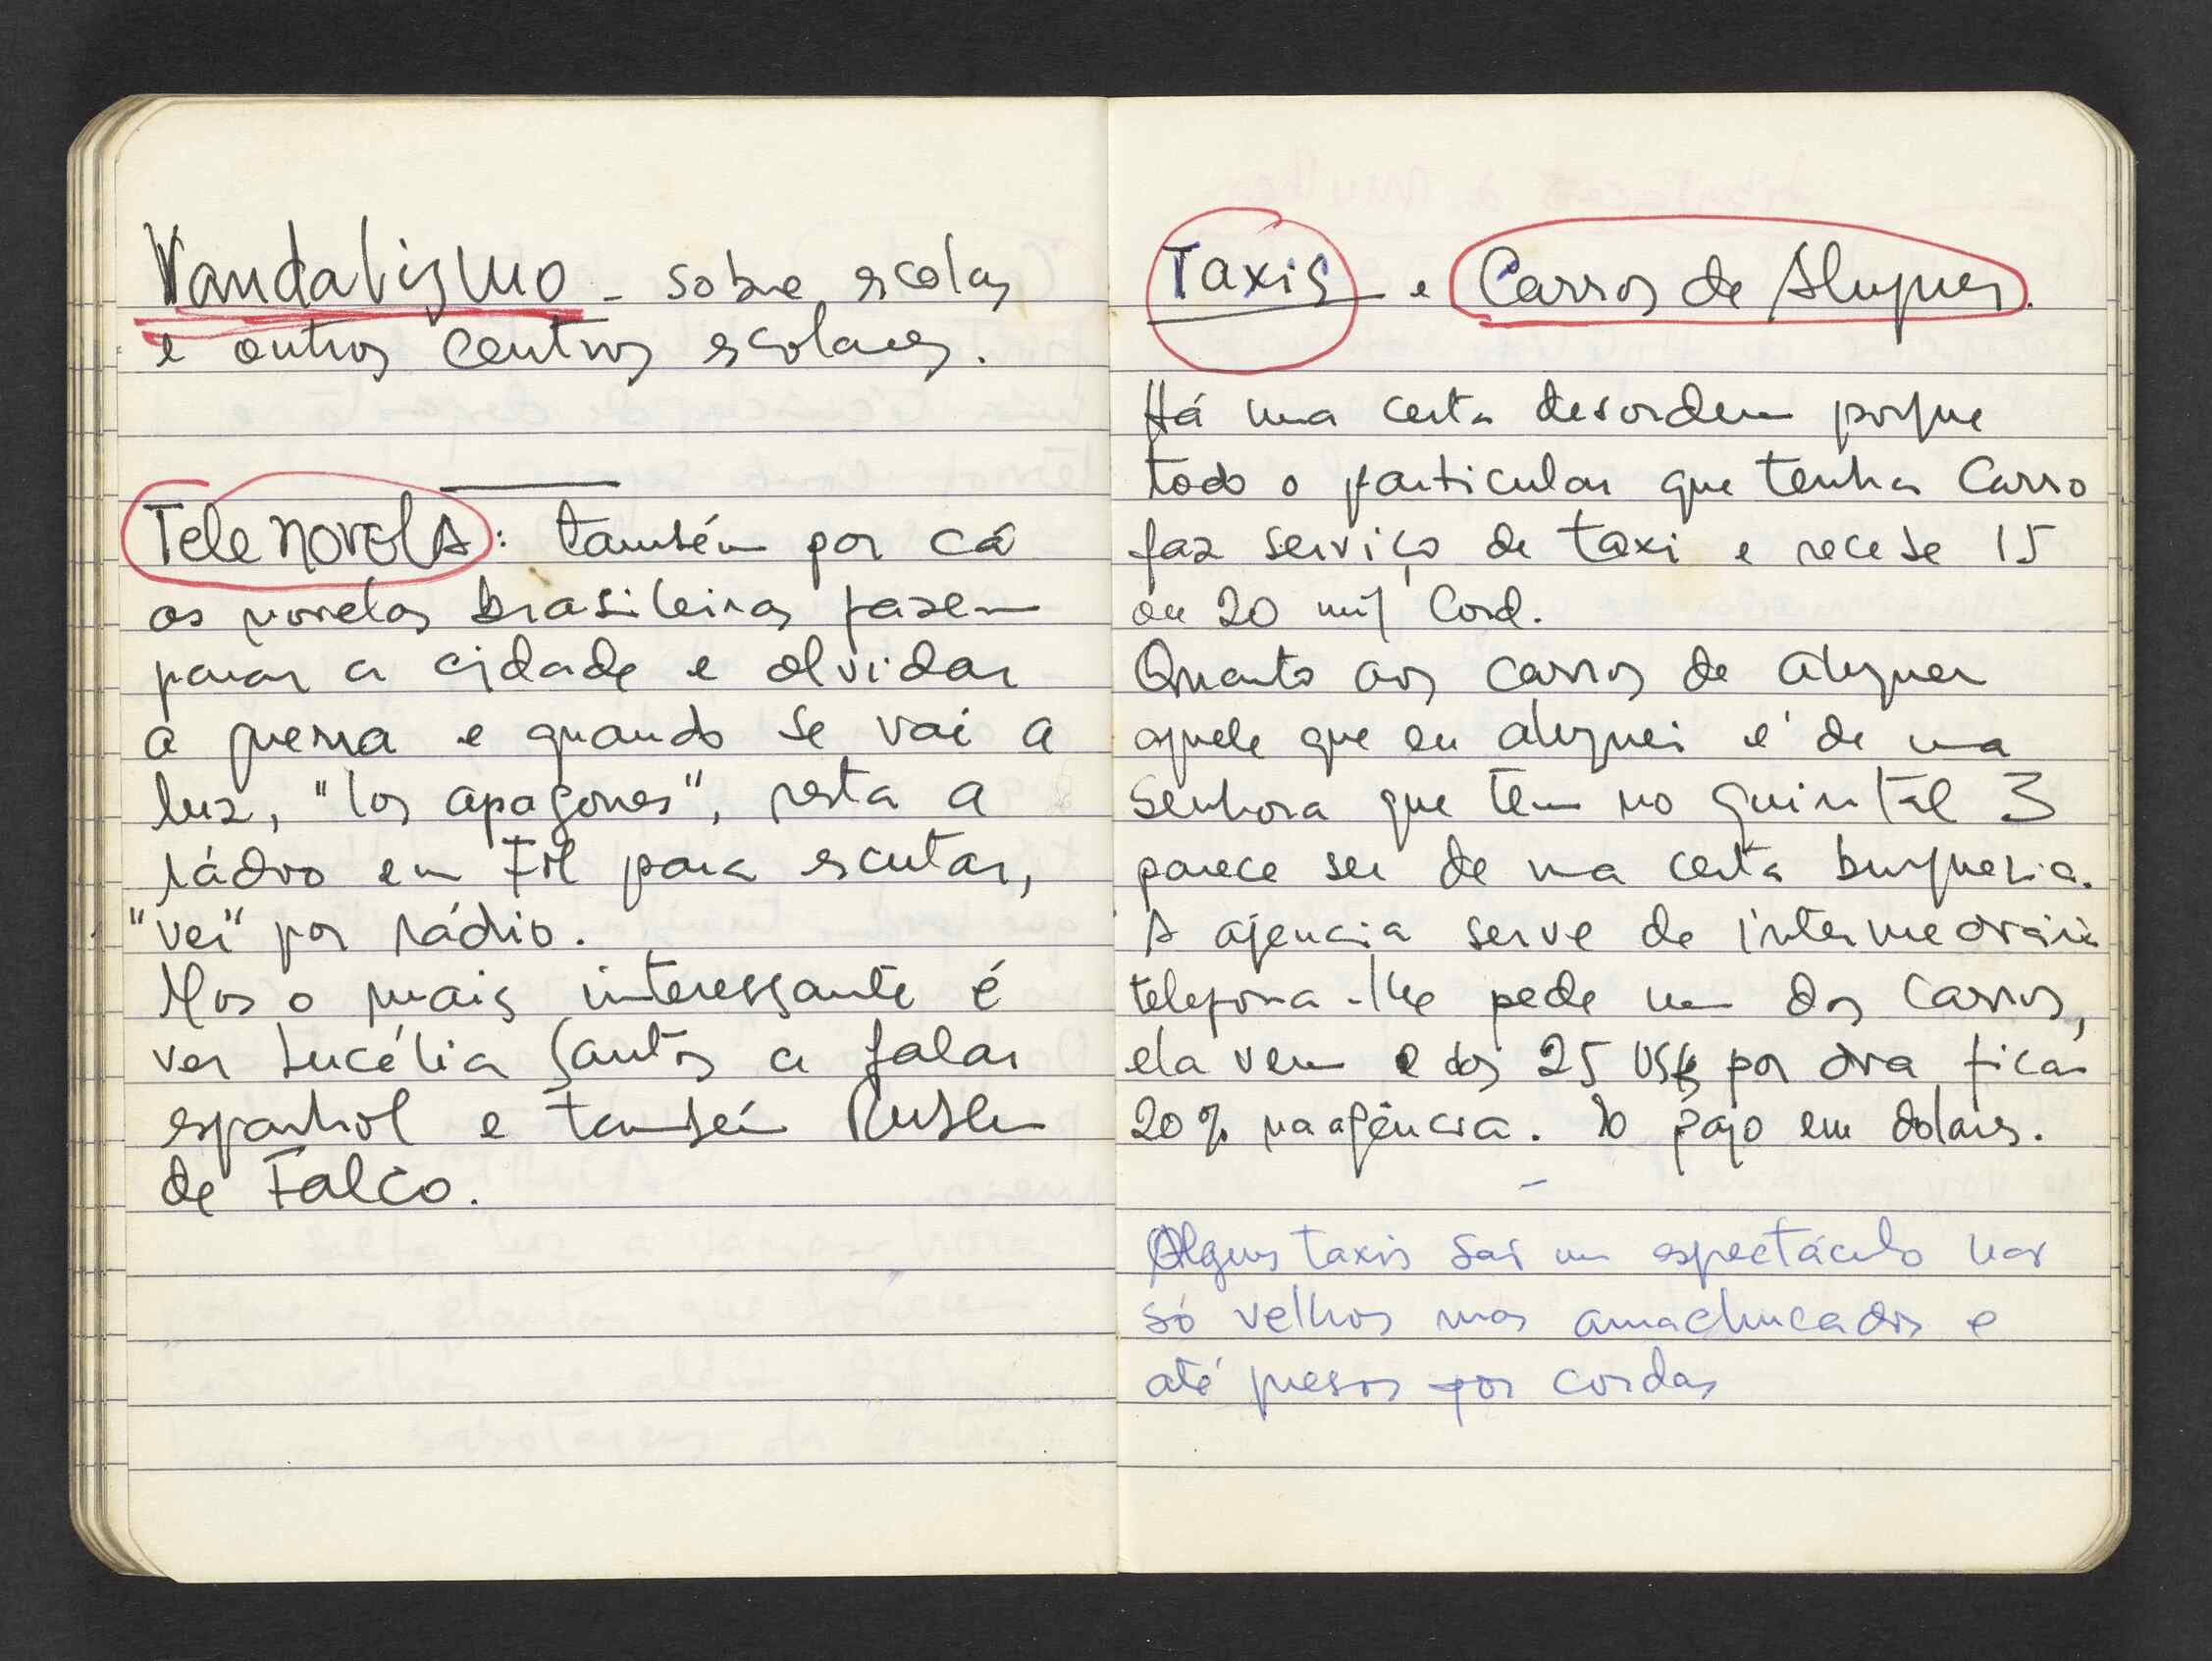 Vandalismo - sobre escolas
e outros centros escolares.
Telenovela: também por cá
as novelas brasileiras fazem
parar a cidade e olvidar
a guerra e quando se vai a
luz, "los apagones", resta a
rádio em FM para escutar,
"ver" por rádio.
Mas o mais interessante é
ver Lucélia Santos a falar
espanhol e também Rubem
de Falco.
Taxis e Carros de Aluguer.
Há uma certa desordem porque
todo o particular que tenha carro
faz serviço de taxi e recebe 15
ou 20 mil Cord.
Quanto aos carros de aluguer
aquele que eu aluguei é de uma
senhora que tem no quintal 3
parece ser de uma certa burguesia.
A agencia serve de intermediária
telefona-lhe pede um dos carros,
ela vem e dos 25 US$ por dia fica
20% na agência. Só pago em dolares.
Alguns taxis são um espectáculo não
só velhos mas amachucados e
até presos por cordas